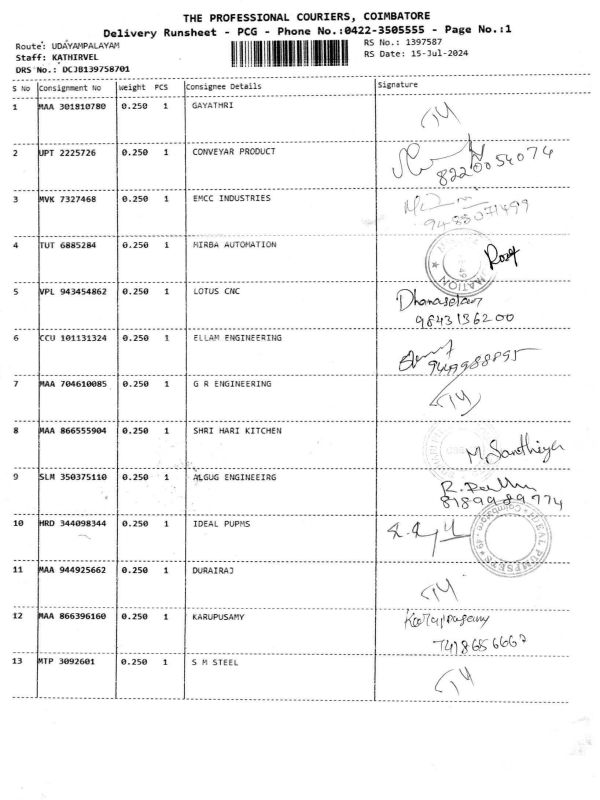 THE PROFESSIONAL COURIERS, COIMBATORE
Delivery Runsheet - PCG - Phone No.:0422-3505555 - Page No.:1
Route: UDAYAMPALAYAM
RS No.: 1397587
Staff: KATHIRVEL
RS Date: 15-Jul-2024
DRS No.: DCJB139758701
S No Consignment No Weight PCS Consignee Details Signature
1 MAA 301810780 0.250 1 GAYATHRI
2 UPT 2225726 0.250 1 CONVEYAR PRODUCT
8220054074
3 MVK 7327468 0.250 1 EMCC INDUSTRIES
9488071499
4 TUT 6885284 0.250 1 MIRBA AUTOMATION
5 VPL 943454862 0.250 1 LOTUS CNC
9843136200
6 CCU 101131324 0.250 1 ELLAM ENGINEERING
7 MAA 704610085 0.250 1 G R ENGINEERING
8 MAA 866555904 0.250 1 SHRI HARI KITCHEN
M. Santhiya
9 SLM 350375110 0.250 1 ALGUG ENGINEEIRG
8189989774
10 HRD 344098344 0.250 1 IDEAL PUPMS
IDEAL PUMPSETS Coimbatore - 49
11 MAA 944925662 0.250 1 DURAIRAJ
12 MAA 866396160 0.250 1 KARUPUSAMY
13 MTP 3092601 0.250 1 S M STEEL